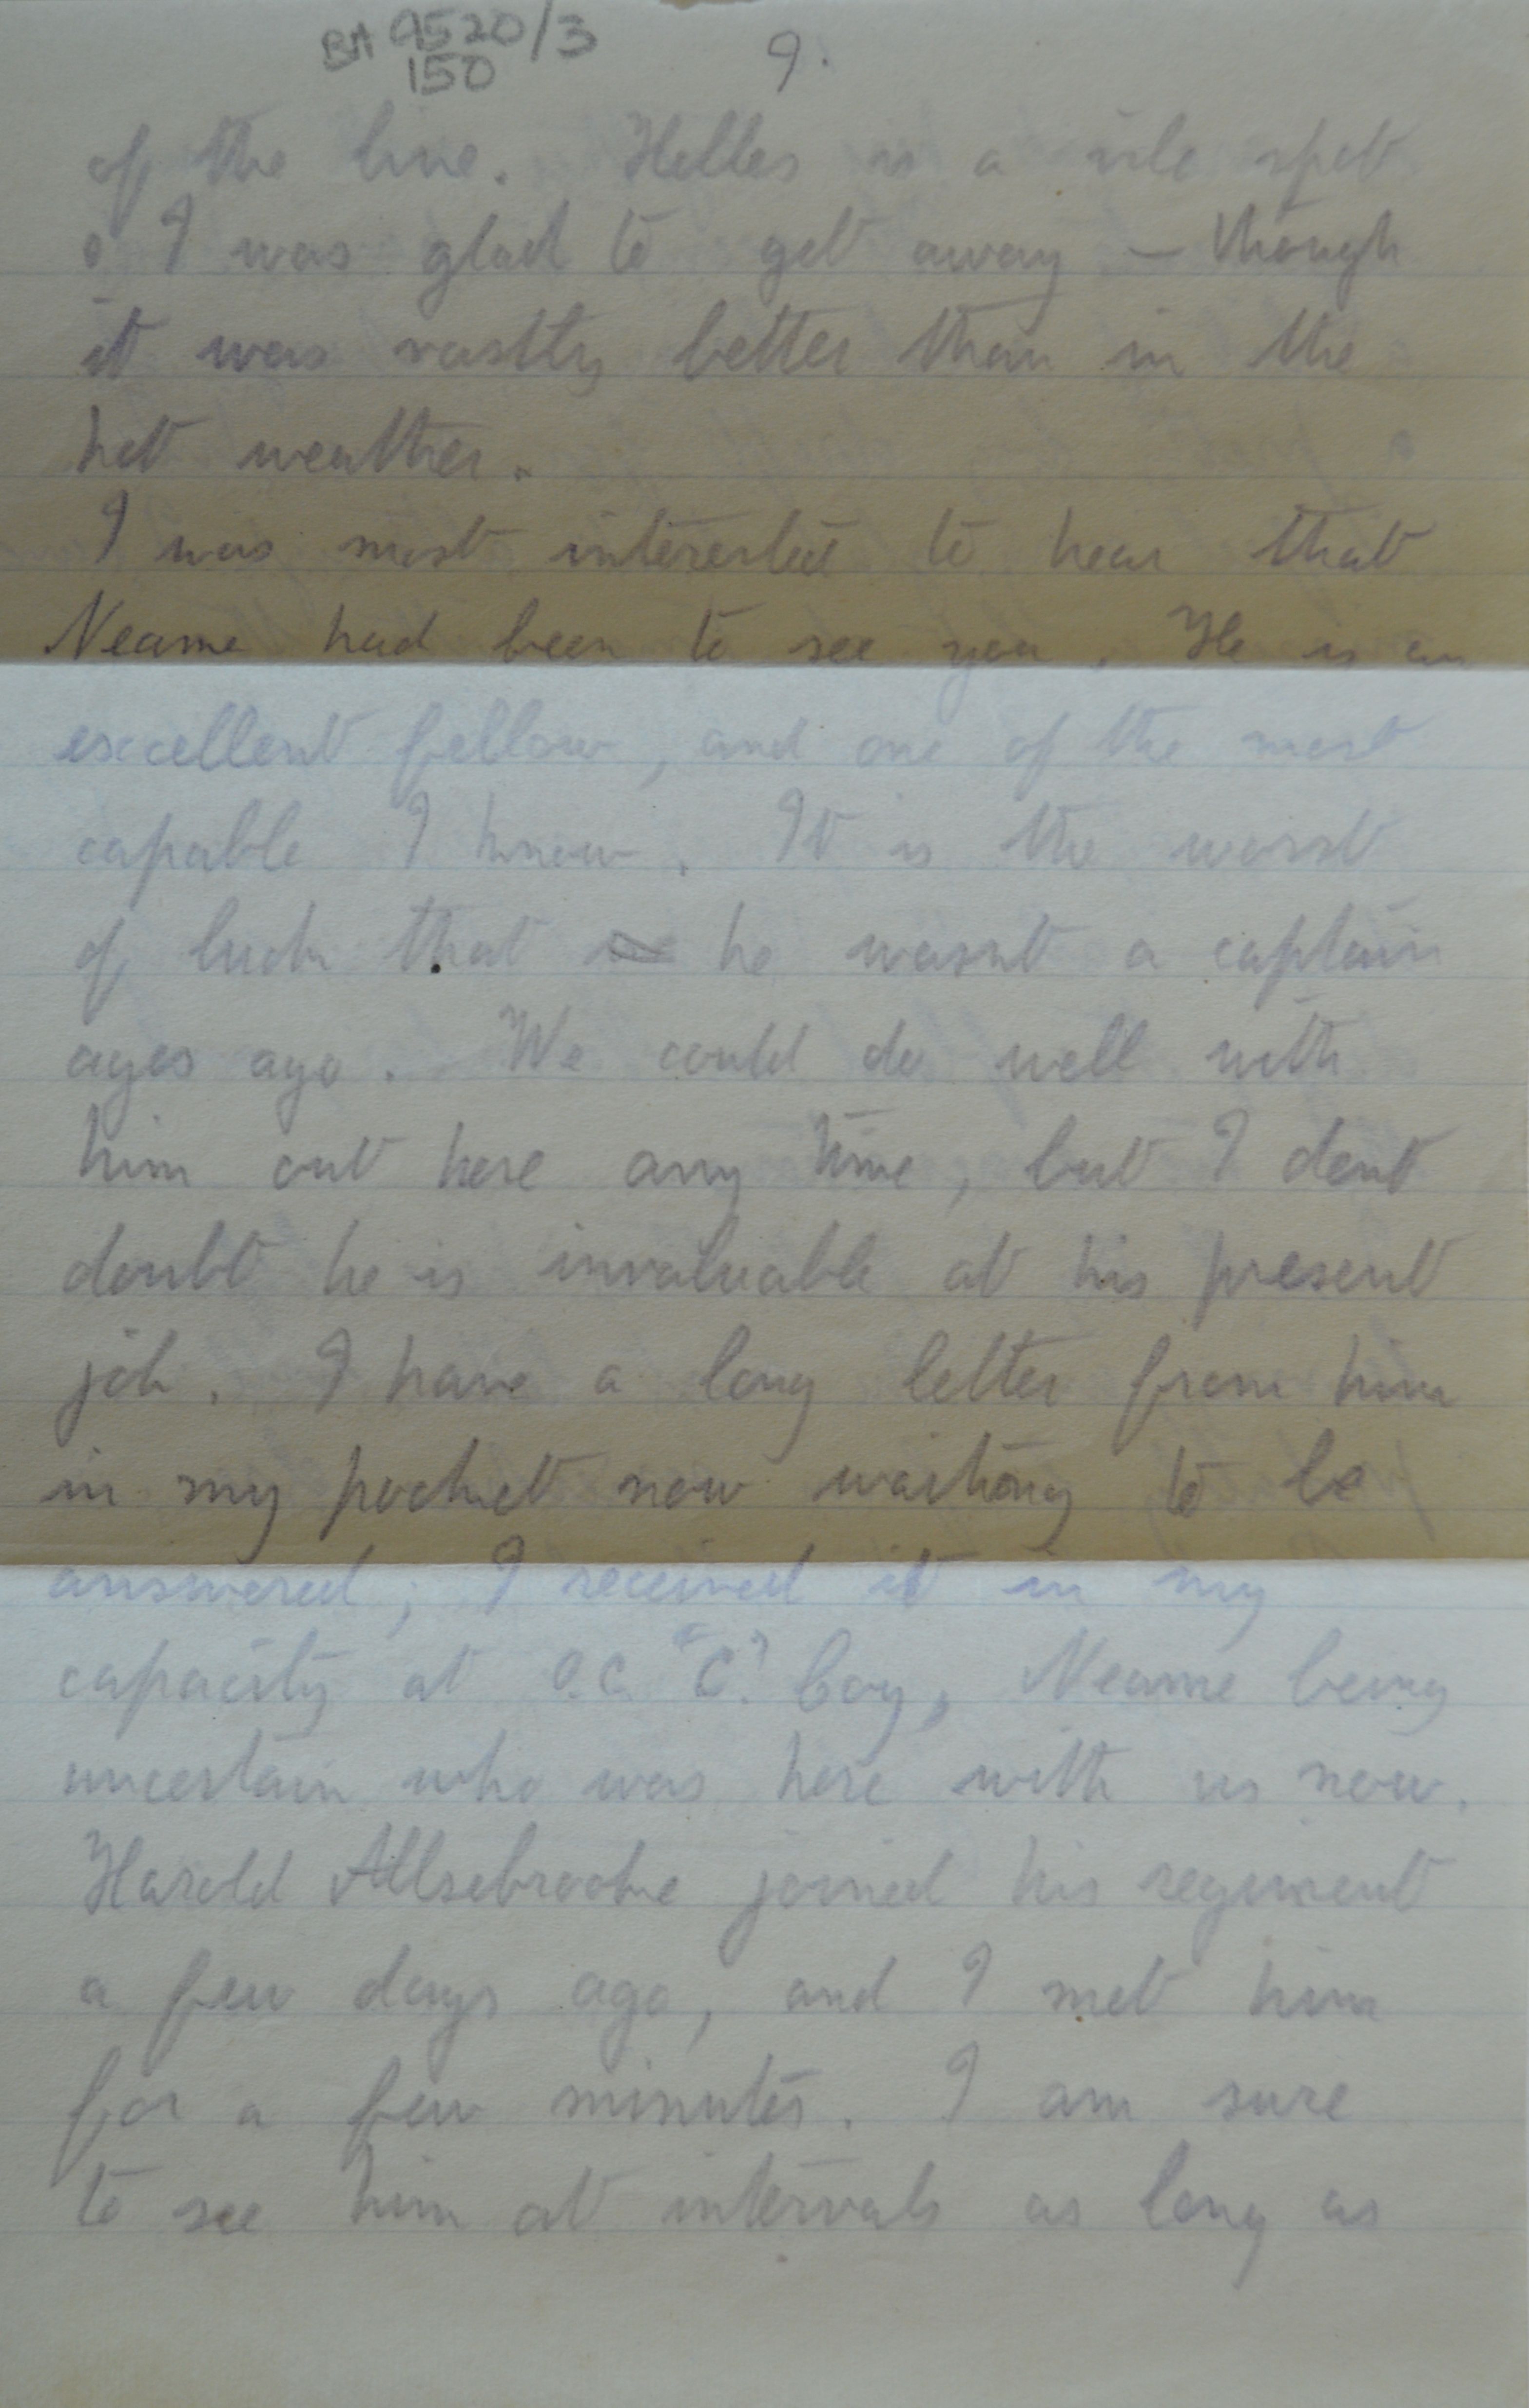 BA 9520/3
150
9.
of the line. Helles is a vile spot
& I was glad to get away – though
it was vastly better than in the
hot weather.
I was most interested to hear that
Neame had been to see you. He is an
excellent fellow, and one of the most
capable I know. It is the worst
of luck that he wasnt a captain
ages ago. We could do well with
him out here any time, but I dont
doubt he is invaluable at his present
job. I have a long letter from him
in my pocket now waiting to be
answered; I received it in my
capacity at O.C. "C" Coy, Neame being
uncertain who was here with us now.
Harold Allsebrooke joined his regiment
a few days ago, and I met him
for a few minutes. I am sure
to see him at intervals as long as